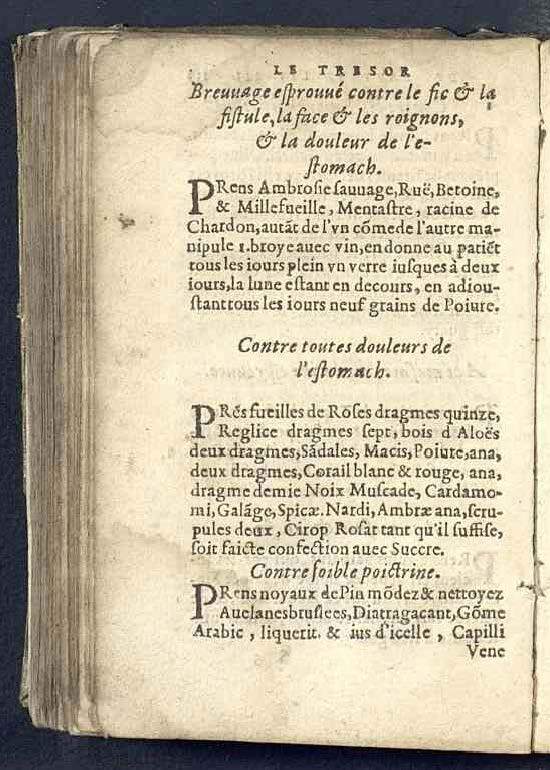 LE TRESOR
Breuuage esprouué contre le fic & la
fistule, la face & les roignons,
& la douleur de l'e-
stomach.
PRens Ambrosie sauuage, Ruë, Betoine,
& Millefueille, Mentastre, racine de
Chardon, autãt de l'vn cõme de l'autre ma-
nipule 1. broye auec vin, en donne au patiẽt
tous les iours plein vn verre iusques à deux
iours, la lune estant en decours, en adiou-
stant tous les iours neuf grains de Poiure.
Contre toutes douleurs de
l'estomach.
PRẽs fueilles de Roses dragmes quinze,
Reglice dragmes sept, bois d Aloës
deux dragmes, Sãdales, Macis, Poiure, ana,
deux dragmes, Corail blanc & rouge, ana,
dragme demie Noix Muscade, Cardamo-
mi, Galãge, Spicæ. Nardi, Ambræ ana, scru-
pules deux, Cirop Rosat tant qu'il suffise,
soit faicte confection auec Succre.
Contre foible poictrine.
PRens noyaux de Pin mõdez & nettoyez
Auelanes bruslees, Diatragacant, Gõme
Arabic, liquerit. & ius d'icelle, Capilli
Vene